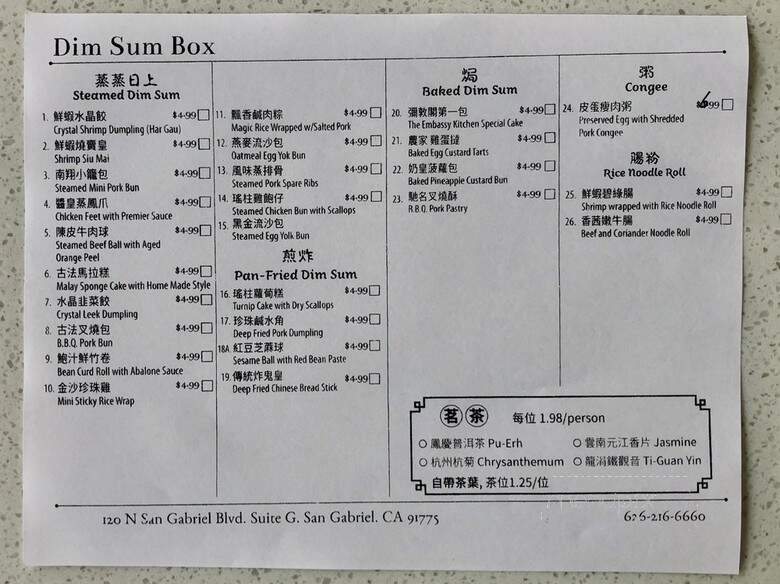 Dim Sum Box
蒸蒸日上
Steamed Dim Sum
1. 鮮蝦水晶餃 $4.99
Crystal Shrimp Dumpling (Har Gau)
2. 鮮蝦燒賣皇 $4.99
Shrimp Siu Mai
3. 南翔小籠包 $4.99
Steamed Mini Pork Bun
4. 醬皇蒸鳳爪 $4.99
Chicken Feet with Premier Sauce
5. 陳皮牛肉球 $4.99
Steamed Beef Ball with Aged
Orange Peel
6. 古法馬拉糕 $4.99
Malay Sponge Cake with Home Made Style
7. 水晶韭菜餃 $4.99
Crystal Leek Dumpling
8. 古法叉燒包 $4.99
B.B.Q. Pork Bun
9. 鮑汁鮮竹卷 $4.99
Bean Curd Roll with Abalone Sauce
10. 金沙珍珠雞 $4.99
Mini Sticky Rice Wrap
11. 飄香鹹肉粽 $4.99
Magic Rice Wrapped w/Salted Pork
12. 燕麥流沙包 $4.99
Oatmeal Egg Yok Bun
13. 風味蒸排骨 $4.99
Steamed Pork Spare Ribs
14. 瑤柱雞飽仔 $4.99
Steamed Chicken Bun with Scallops
15. 黑金流沙包
Steamed Egg Yolk Bun
煎炸
Pan-Fried Dim Sum
16. 瑤柱蘿蔔糕 $4.99
Turnip Cake with Dry Scallops
17. 珍珠鹹水角 $4.99
Deep Fried Pork Dumpling
18A. 紅豆芝蔴球 $4.99
Sesame Ball with Red Bean Paste
19. 傳統炸鬼皇 $4.99
Deep Fried Chinese Bread Stick
焗
Baked Dim Sum
20. 彌敦閣第一包 $4.99
The Embassy Kitchen Special Cake
21. 農家 雞蛋撻 $4.99
Baked Egg Custard Tarts
22. 奶皇菠蘿包 $4.99
Baked Pineapple Custard Bun
23. 馳名叉燒酥 $4.99
B.B.Q. Pork Pastry
粥
Congee
24. 皮蛋瘦肉粥 $6.99
Preserved Egg with Shredded
Pork Congee
腸粉
Rice Noodle Roll
25. 鮮蝦碧綠腸 $4.99
Shrimp wrapped with Rice Noodle Roll
26. 香茜嫩牛腸 $4.99
Beef and Coriander Noodle Roll
茗茶 每位 1.98/person
鳳慶普洱茶 Pu-Erh
雲南元江香片 Jasmine
杭州杭菊 Chrysanthemum
龍涓鐵觀音 Ti-Guan Yin
自帶茶葉, 茶位1.25/位
120 N San Gabriel Blvd. Suite G. San Gabriel. CA 91775
626-216-6660